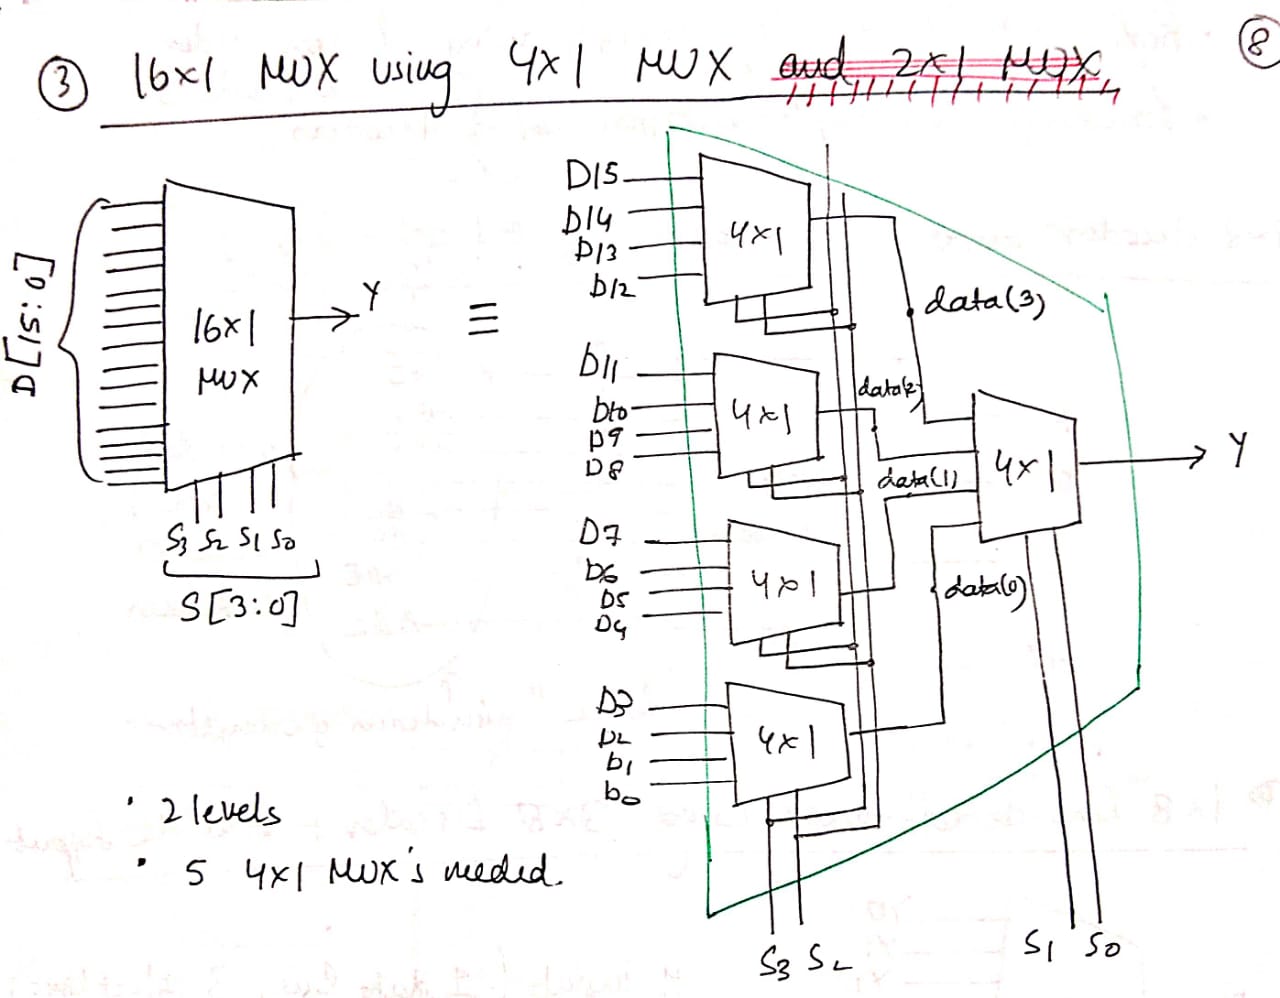 8
3 16x1 MUX using 4x1 MUX and 2x1 MUX
D[15:0]
16x1
MUX
Y
≡
S3 S2 S1 S0
S[3:0]
D15
D14
D13
D12
4x1
data(3)
D11
D10
D9
D8
4x1
data(2)
data(1)
4x1
Y
D7
D6
D5
D4
4x1
data(0)
D3
D2
D1
D0
4x1
S3 S2
S1 S0
· 2 levels
· 5 4x1 MUX's needed.